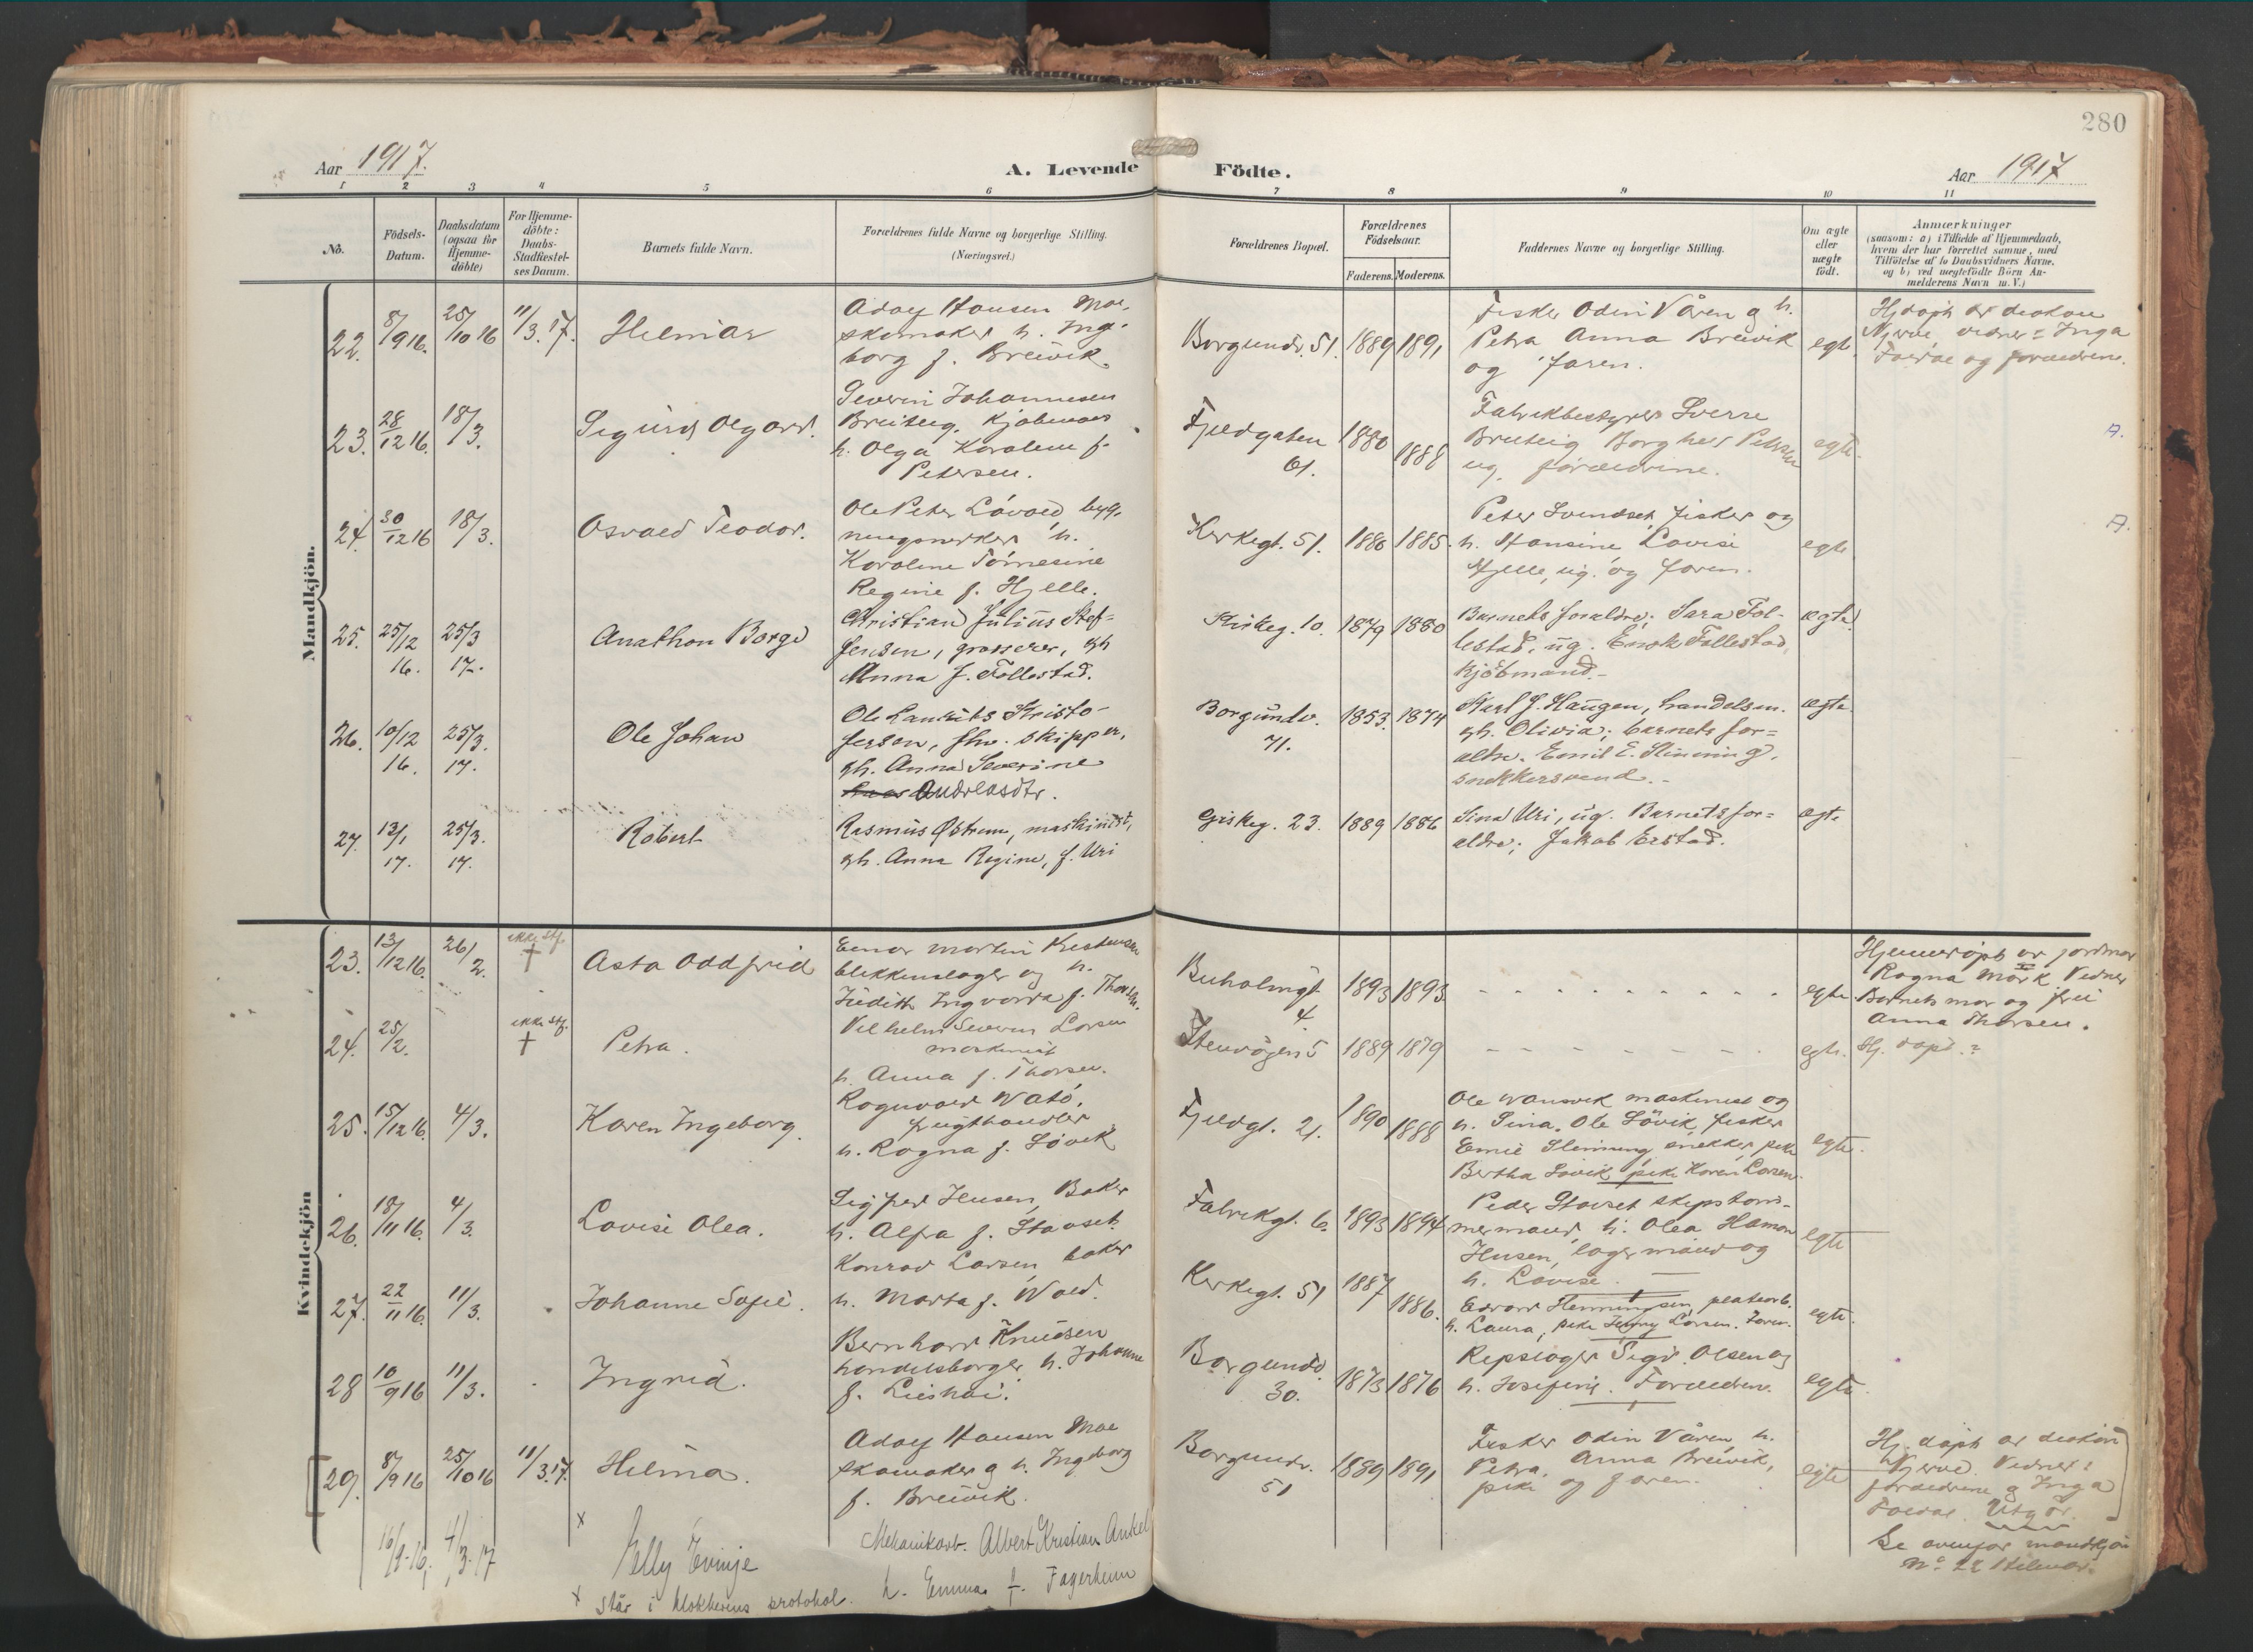 280
Aar 1917.
A. Levende
Födte.
Aar 1917
1 2 3 4 5 6 7 8 9 10 11
No.
Födsels-
Datum.
Daabsdatum
(ogsaa for
Hjemme-
döbte)
For Hjemme-
döbte:
Daabs-
Stadfæstel-
ses Datum.
Barnets fulde Navn.
Forældrenes fulde Navne og borgerlige Stilling.
(Næringsvei.)
Forældrenes Bopæl.
Forældrenes
Födselsaar.
Faderens. Moderens.
Faddernes Navne og borgerlige Stilling.
Om ægte
eller
uægte
födt.
Anmærkninger
(saasom: a) i Tilfælde af Hjemmedaab,
hvem der har forrettet samme, med
Tilföielse af to Daabsvidners Navne,
og b) ved uægtefödte Börn An-
melderens Navn m. V.)
Mandkjön.
22. 8/9 16. 25/10 16 11/3.17. Helmar
Adolf Hansen Mal
skomaker h. Inge-
borg f. Breivik.
Borgundv. 51. 1889 1891
Fisker Odin Våren og h.
Petra Anna Breivik
og faren.
egte
Hjdøpt av diakon
Njerve, vidner: Inga
Foldal og forældrene.
23. 28/12 16. 18/3. Sigurd Olgard.
Severin Johannesen
Breiteig, Kjøbmand
h. Olga Karoline f.
Petersen.
Fjeldgaten
61.
1880 1888
Fabrikbestyrer Sverre
Breiteig Borghild Petersen
ug. forældrene.
egte.
A.
24. 30/12 16 18/3. Osvald Teodor.
Ole Peter Løvold byg-
ningsnerker h.
Karoline Tomesine
Regine f. Hjelle.
Kirkegt. 51. 1886 1885.
Peter Svendset, fisker og
h. Hansine, Lovise
Hjelle, ug. og faren.
egte
A.
25. 25/12 16. 25/3 17. Anathon Borge
Christian Julius Stef-
fensen, grosserer, gh
Anna f. Follestad.
Kirkeg. 10. 1879 1880
Barnets foraldre; Sara Fol-
lestad, ug. Enok Follestad,
Kjöbmand.-
ægte.
26. 10/12 16. 25/3. 17. Ole Johan
Ole Laurits Kristo-
ferson, fhv. skipper,
gh. Anna Severine
Andreasdtr.
Borgundv.
71.
1853. 1874
Karl J. Haugen, handelsm.
gh. Olivia; barnets for=
ældre. Emil E. Slinning,
snekkersvend.-
ægte.
27. 13/1 17. 25/3. 17. Robert
Rasmus Østrem, maskinist,
gh. Anna Regine, f. Uri
Giskeg. 23. 1889 1886
Sina Uri, ug. Barnets for=
ældre; Jakob Erstad.
ægte
Kvindekjön
23. 13/12 16. 26/2. ikke stf. † Asta Oddfrid
Einar Martin Kristensen
blikkenslager og h.
Judith Ingvarda f. Thorsen.
Buholmgt.
4.
1893 1893.
- - - - - - - - - -
egte.
Hjemmedøpt av jordmor
Ragna Mørk. Vidner
Barnets mor og frk
Anna Thorsen.
24. 25/2. ikke stf. † Petra.
Vilhelm Severin Larsen
maskinist
h. Anna f. Thorsen.
Stenvågen 5 1889 1879
- - - - - - - -
egte.
Hj. døpt.?
25. 15/12 16. 4/3. Karen Ingeborg.
Ragnvald Natø,
frugthandler
h. Ragna f. Løvik
Fjeldgt. 21. 1890 1888
Ole Vansvik maskinist og
h. Sina. Ole Løvik, fisker
Emil Slinning, snekker, pike
Bertha Løvik pike Karen Larsen.
egte.
26. 18/11 16. 4/3. Lovise Olea.
Sigfred Husen, Baker
h. Alfa f. Stavset.
Fabrikgt. 6. 1893 1894
Peder Stavset skipstøm-
mermand, h. Olea Haman
Husen, lagermand og
h. Lovise.
egte
27. 22/11 16. 11/3. Johanne Sofie.
Konrad Larsen, baker
h. Marta f. Wold.
Kirkegt. 51 1887 1886.
Edvard Henningsen, platearb.
h. Laura, pike Jenny Larsen. Faren.
egte.
28 10/9 16 11/3. Ingrid.
Bernhard Knudsen
handelsborger h. Johanne
f. Lieshoi.
Borgundv.
30.
1873 1876
Repslager Sigv. Olsen og
h. Josefine. Forældrene.
egte.
29. 8/9 16 25/10 16 11/3.17. Helma.
Adolf Hansen Mal
skomaker g h. Ingeborg
f. Breivik.
Borgundv.
51
1889 1891
Fisker Odin Våren h.
Petra, Anna Breivik,
pike og faren.
egte
Hj. døpt av diakon
Njerve. Vidner:
forældrene g Inga
Foldal. Utgår.
Se ovenfor mandkjøn
No 22 Helmar.
16/9-16, 4/3-17 x Nelly Evinje
Mekanikarb. Albert Kristian Ankel
h. Emma f. Fagerheim
x står i klokkerens protokol.